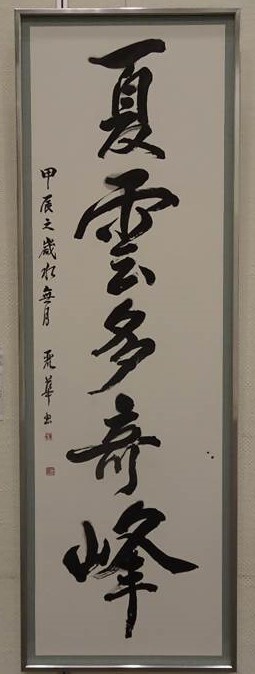 夏雲多奇峰
甲辰之歳水無月 麗華書